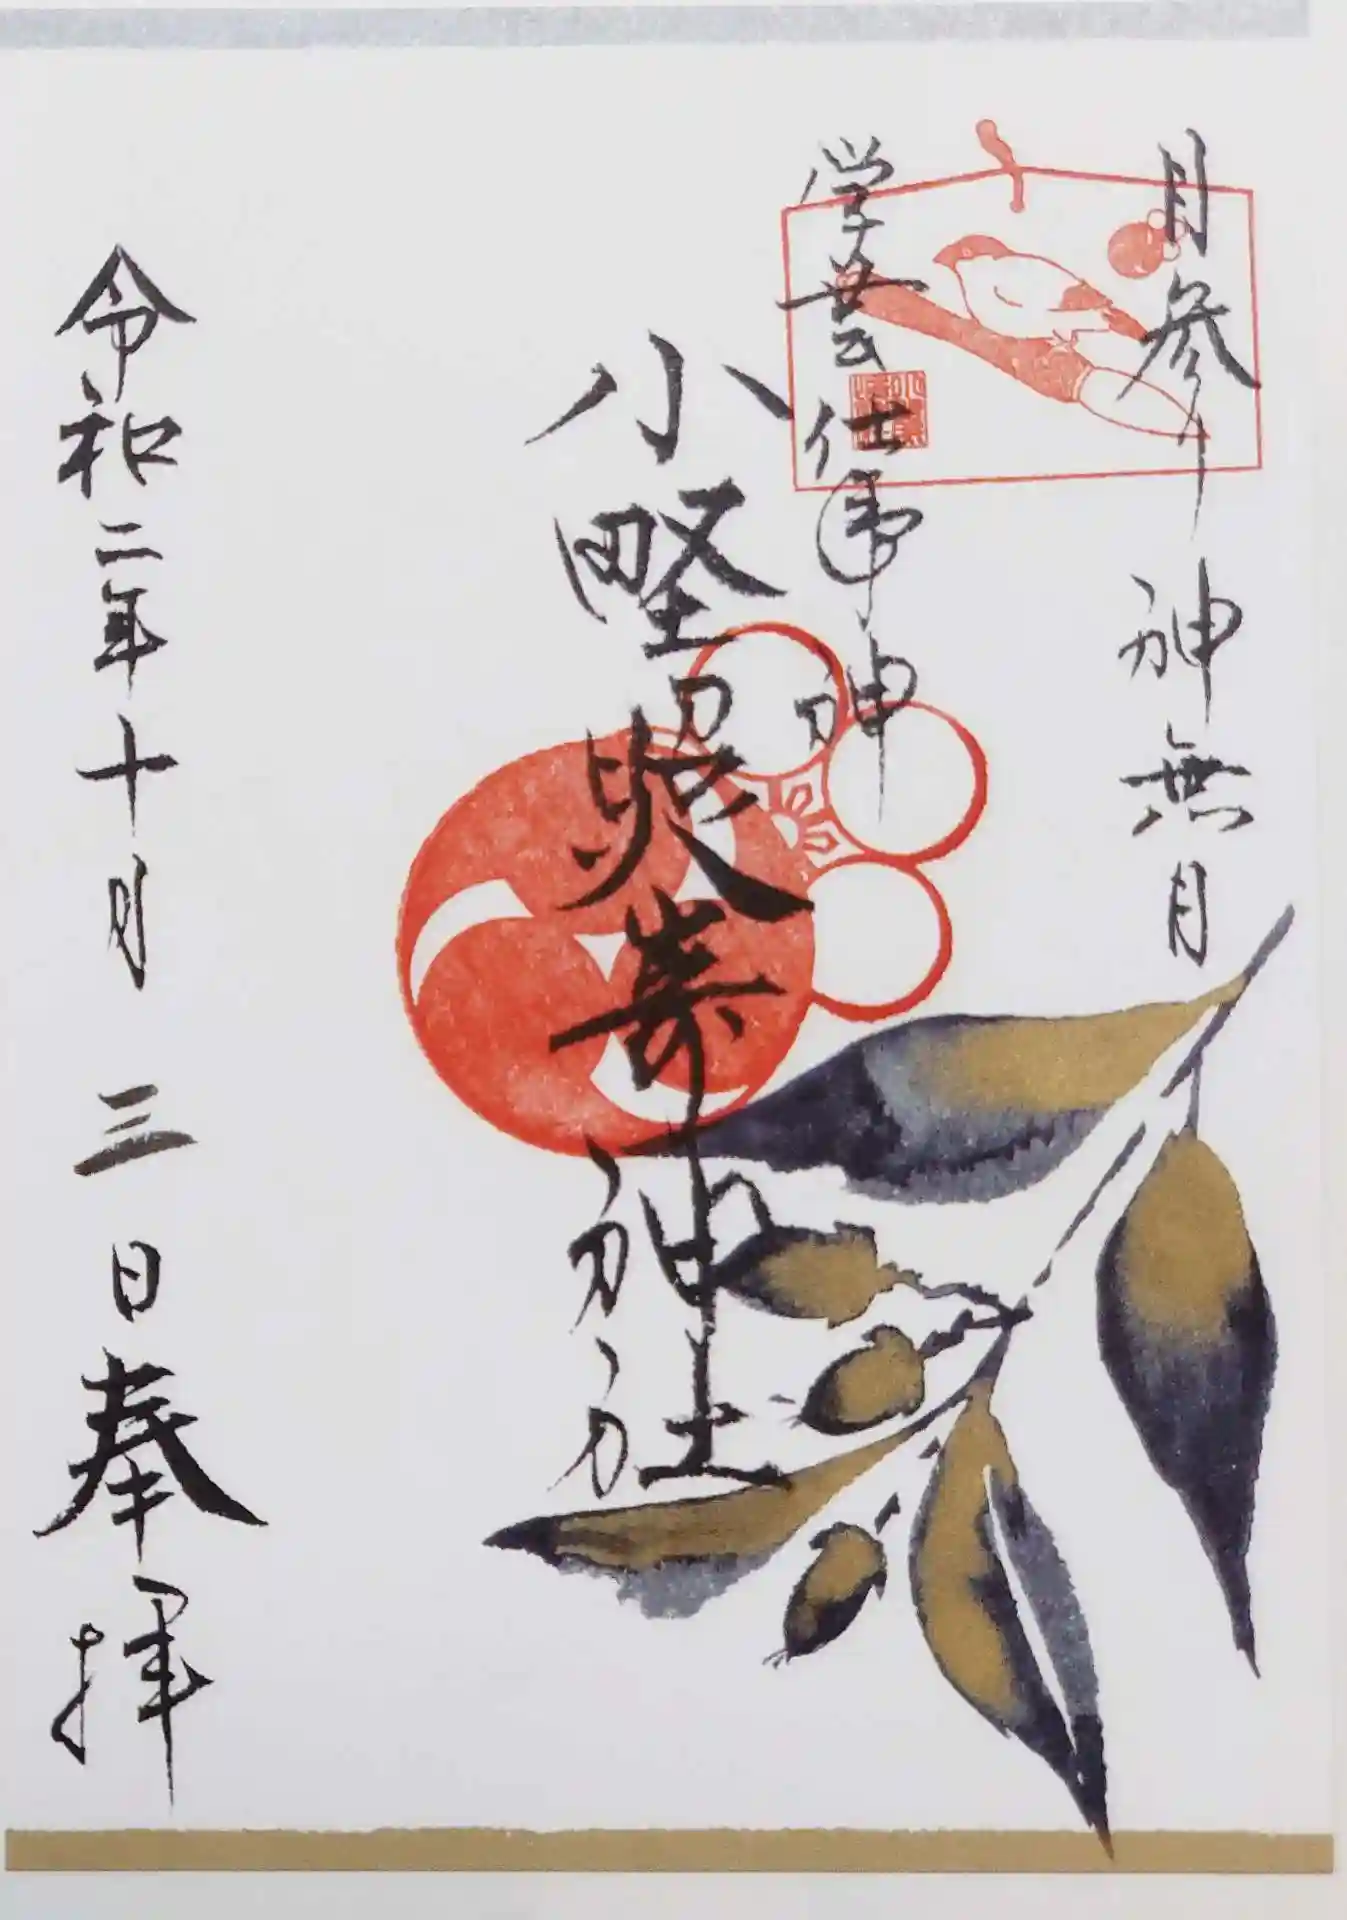 月参り 神無月
学芸仕事神
小野照嵜神社
令和二年十月 三 日奉拝